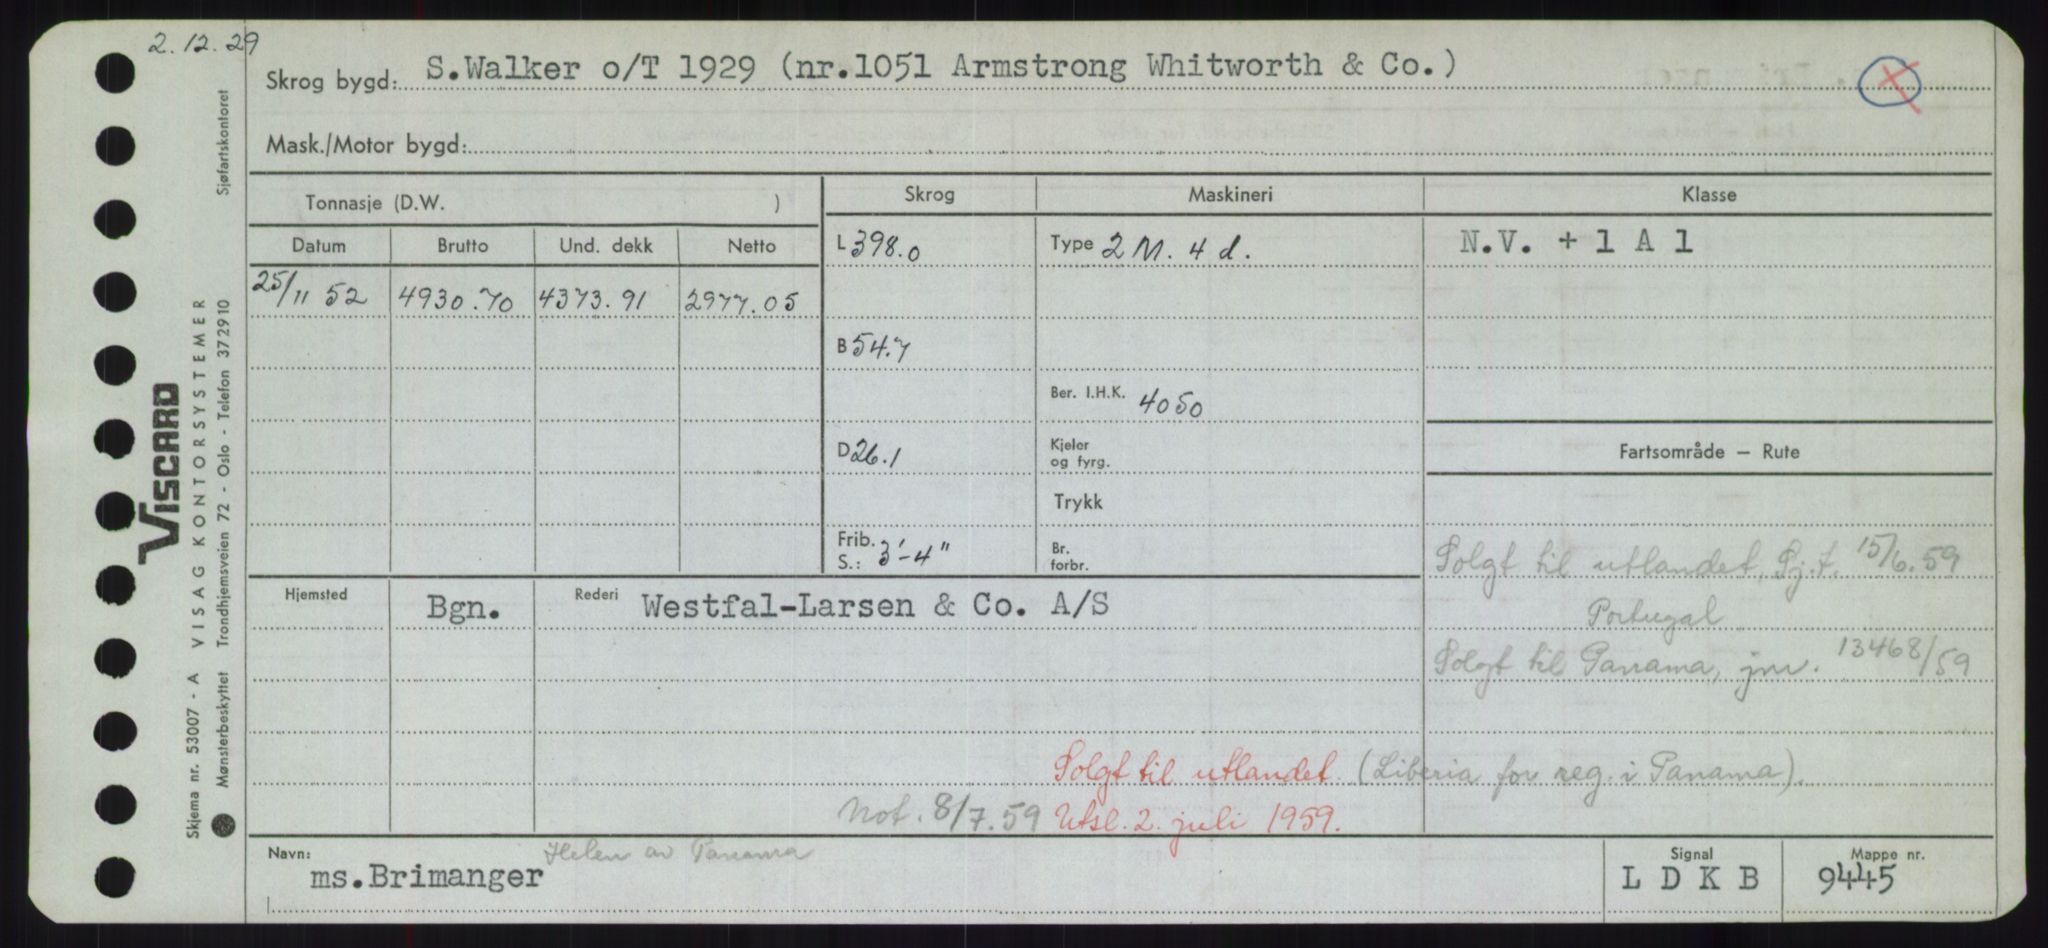 2.12.29
Skrog bygd: S.Walker o/T 1929 (nr.1051 Armstrong Whitworth & Co.)
Mask./Motor bygd:
Tonnasje (D.W. )
Skrog
Maskineri
Klasse
Datum Brutto Und. dekk Netto
L 398.0
Type 2 M. 4 d.
N.V. + 1 A 1
25/11 52 4930.70 4373.91 2977.05
B 54.7
Ber. I.H.K. 4050
D 26.1
Kjeler og fyrg.
Fartsområde – Rute
Trykk
Frib. S.: 3'-4"
Br. forbr.
Solgt til utlandet, Sj.f. 15/6.59
Portugal
Solgt til Panama, jnr. 13468/59
Hjemsted Bgn. Rederi Westfal-Larsen & Co. A/S
Solgt til utlandet (Liberia for reg. i Panama).
Not. 8/7.59 Utsl. 2. juli 1959.
Navn: ms.Brimanger
Helen av Panama
Signal LDKB
Mappe nr. 9445
Sjøfartskontoret
VISCARD
VISAG KONTORSYSTEMER
Trondhjemsveien 72 - Oslo - Telefon 372910
Skjema nr. 53007 - A
Mønsterbeskyttet